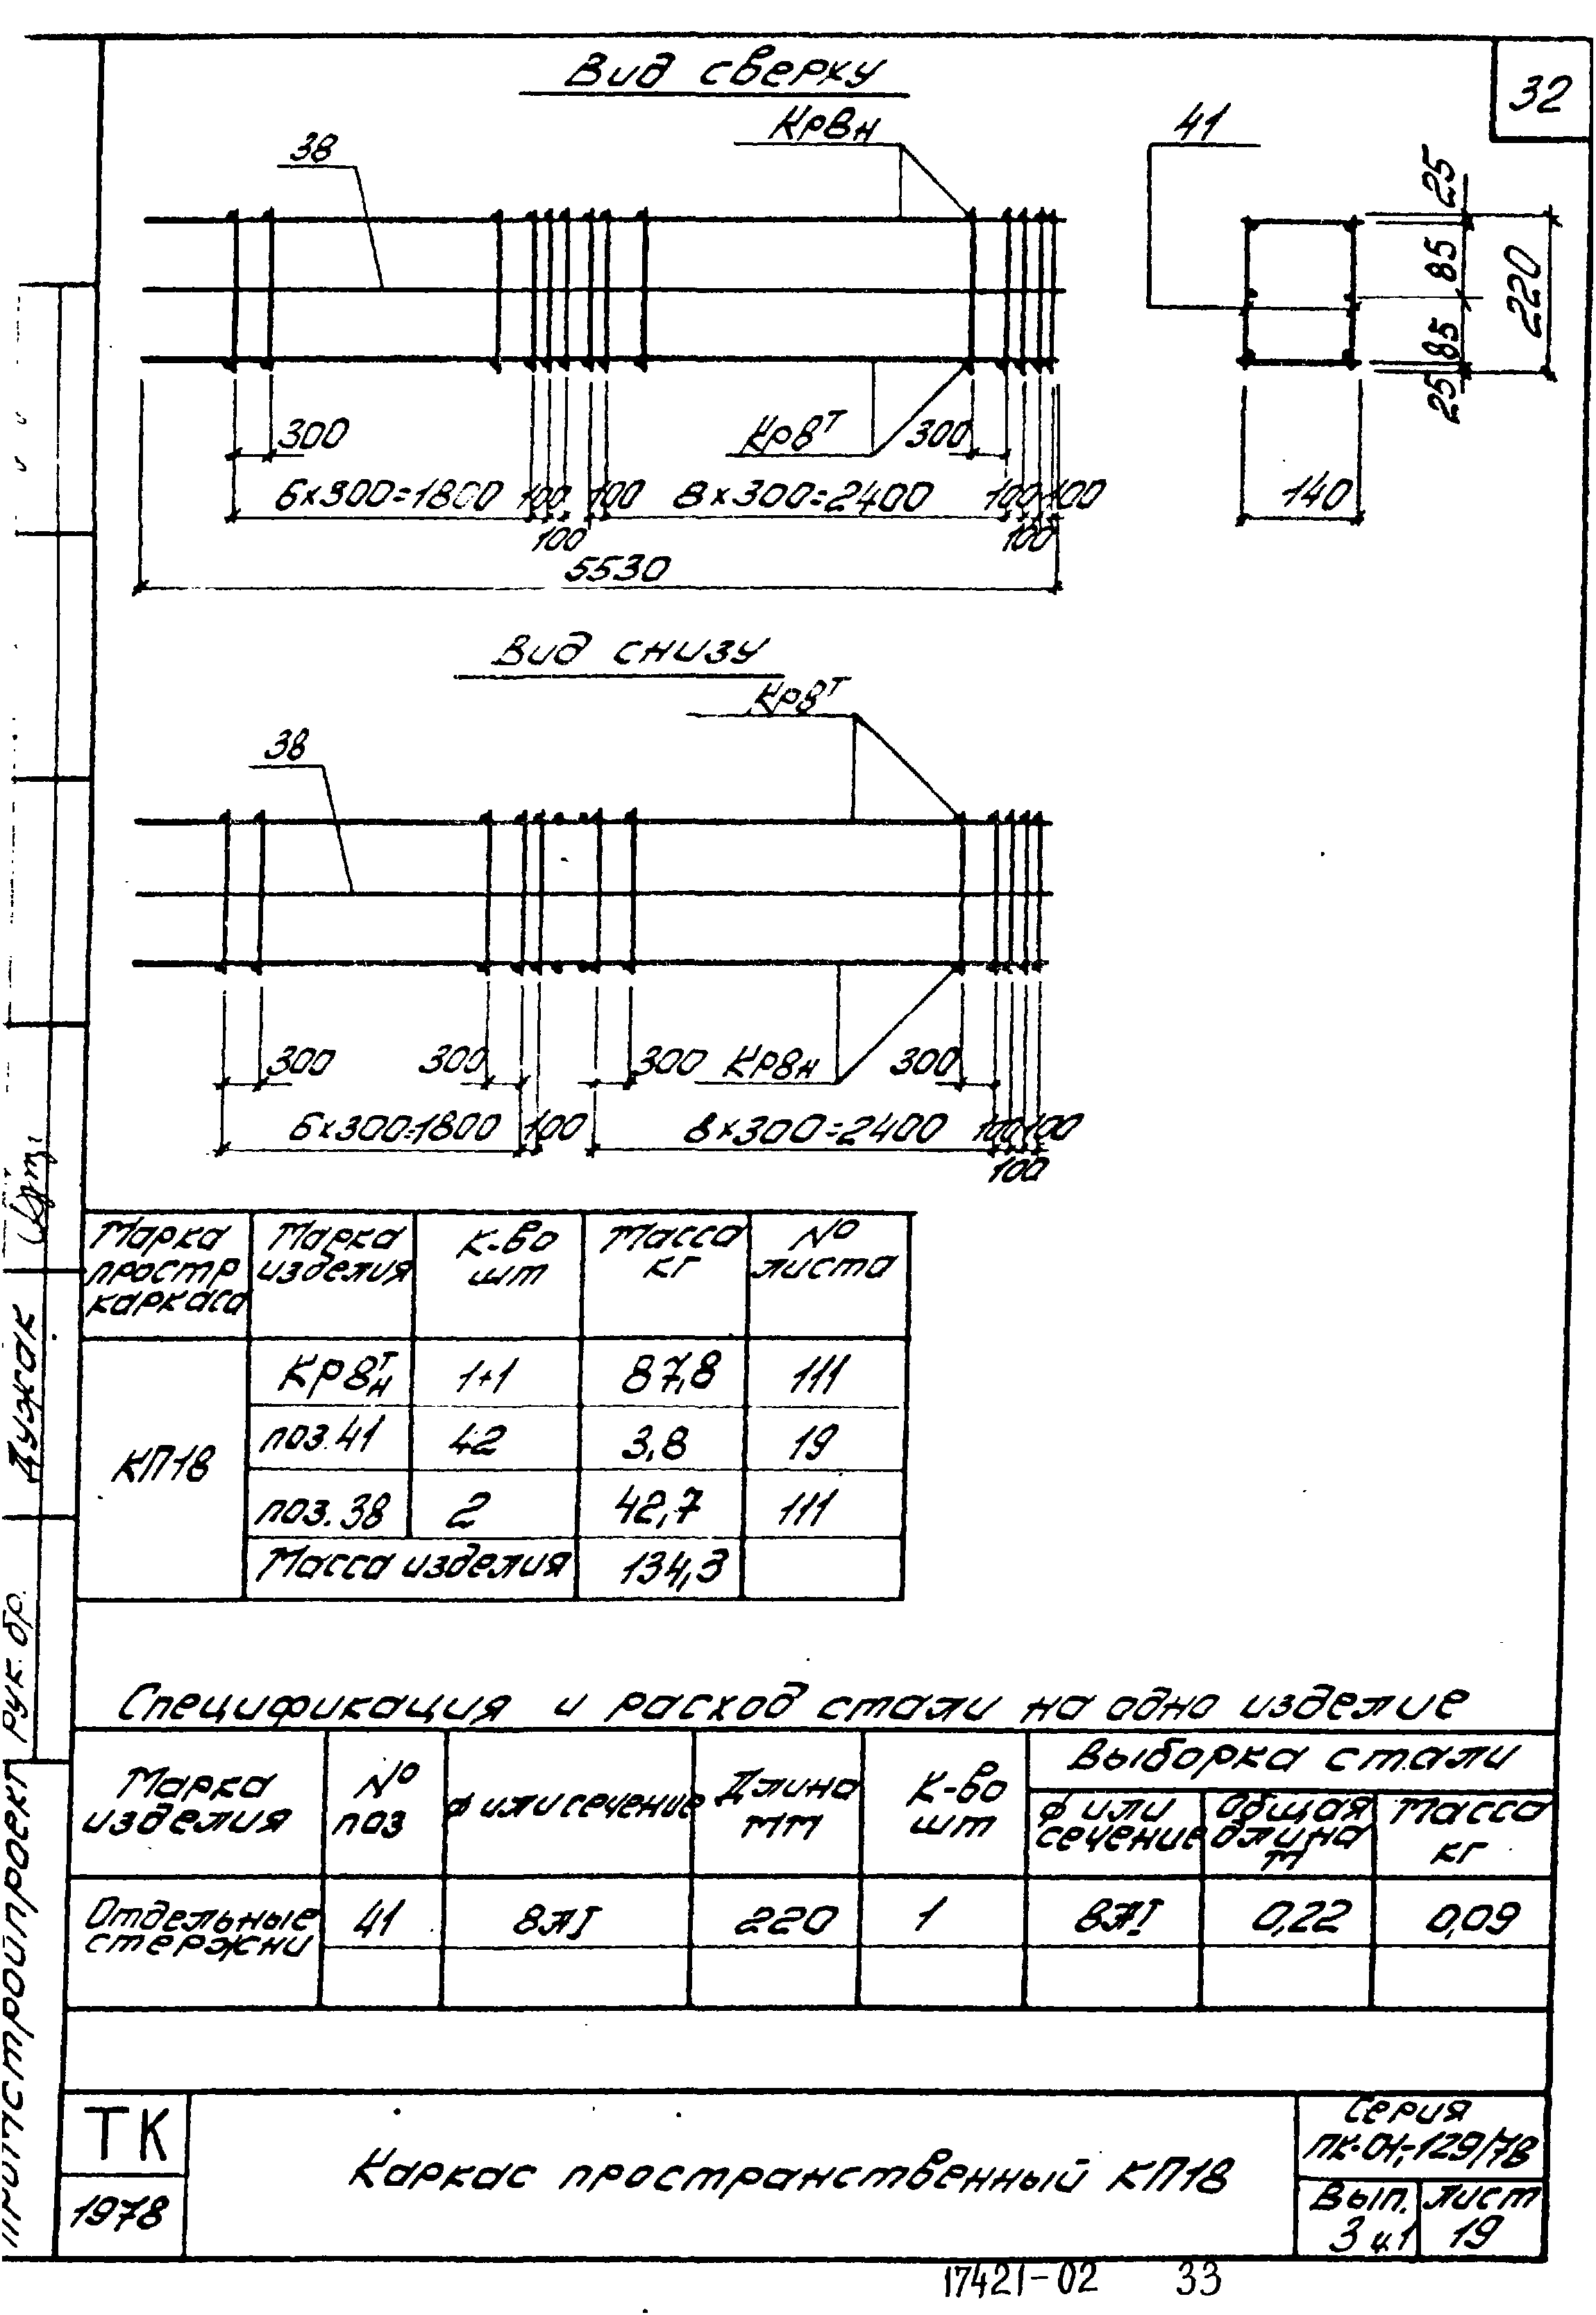 32
Вид сверху
38
Кр8н
41
25
85
85
25
220
140
300
Кр8т
300
6×300=1800
100
100
8×300=2400
100
100
100
100
5530
Вид снизу
Кр8т
38
300
300
300
Кр8н
300
6×300=1800
100
8×300=2400
100
100
100
Марка простр каркаса
Марка изделия
К-во шт
Масса кг
№ листа
КП18
КР8тн
1+1
87,8
111
поз.41
42
3,8
19
поз.38
2
42,7
111
Масса изделия
134,3
Спецификация и расход стали на одно изделие
Марка изделия
№ поз
ф или сечение
Длина мм
К-во шт
Выборка стали
ф или сечение
Общая длина м
Масса кг
Отдельные стержни
41
8АI
220
1
8АI
0,22
0,09
ТК
1978
Каркас пространственный КП18
Серия
ПК-01-129/78
Вып.
3 ч.1
лист
19
17421-02
33
Дужак
Рук. бр.